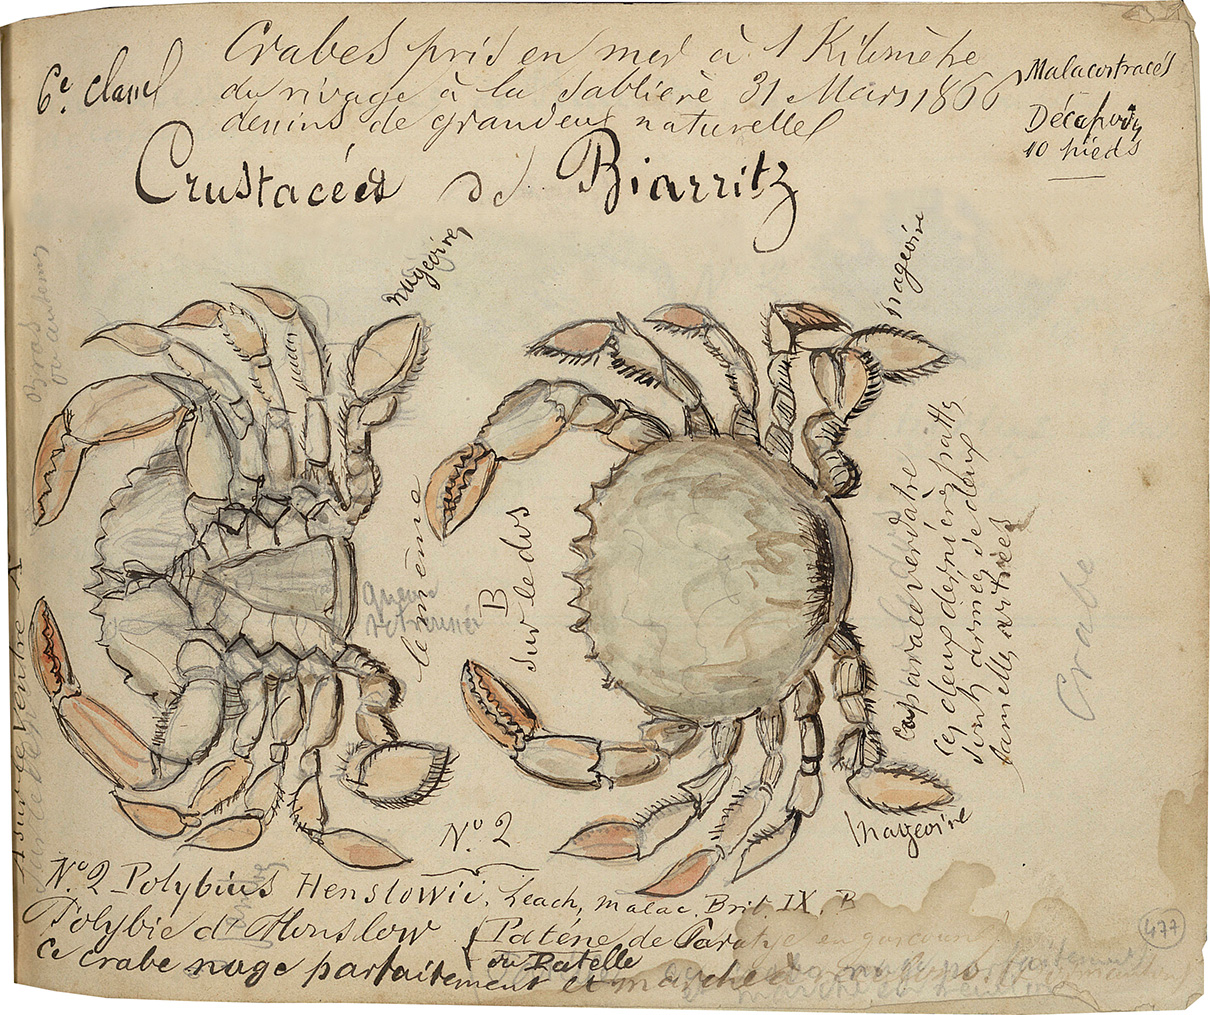 6e. classe
Crabes pris en mer à 1 Kilomètre
du rivage à la Sablière 31 Mars 1866
dessins de grandeur naturelle
Malacostracés
Décapodes
10 pieds
Crustacées de Biarritz
nageoire
nageoire
Bras
le même
queue
retournée
B
Sur le dos
A sur le Ventre
carapace verdatre
les deux dernières patts
sont armées de
lamelles
Crabe
nageoire
No. 2
No 2 Polybius Henslowii, Leach, Malac. Brit. IX, B
Polybie d'Henslow
Patène de
ou Patelle
ce crabe nage parfaitement et marche
477